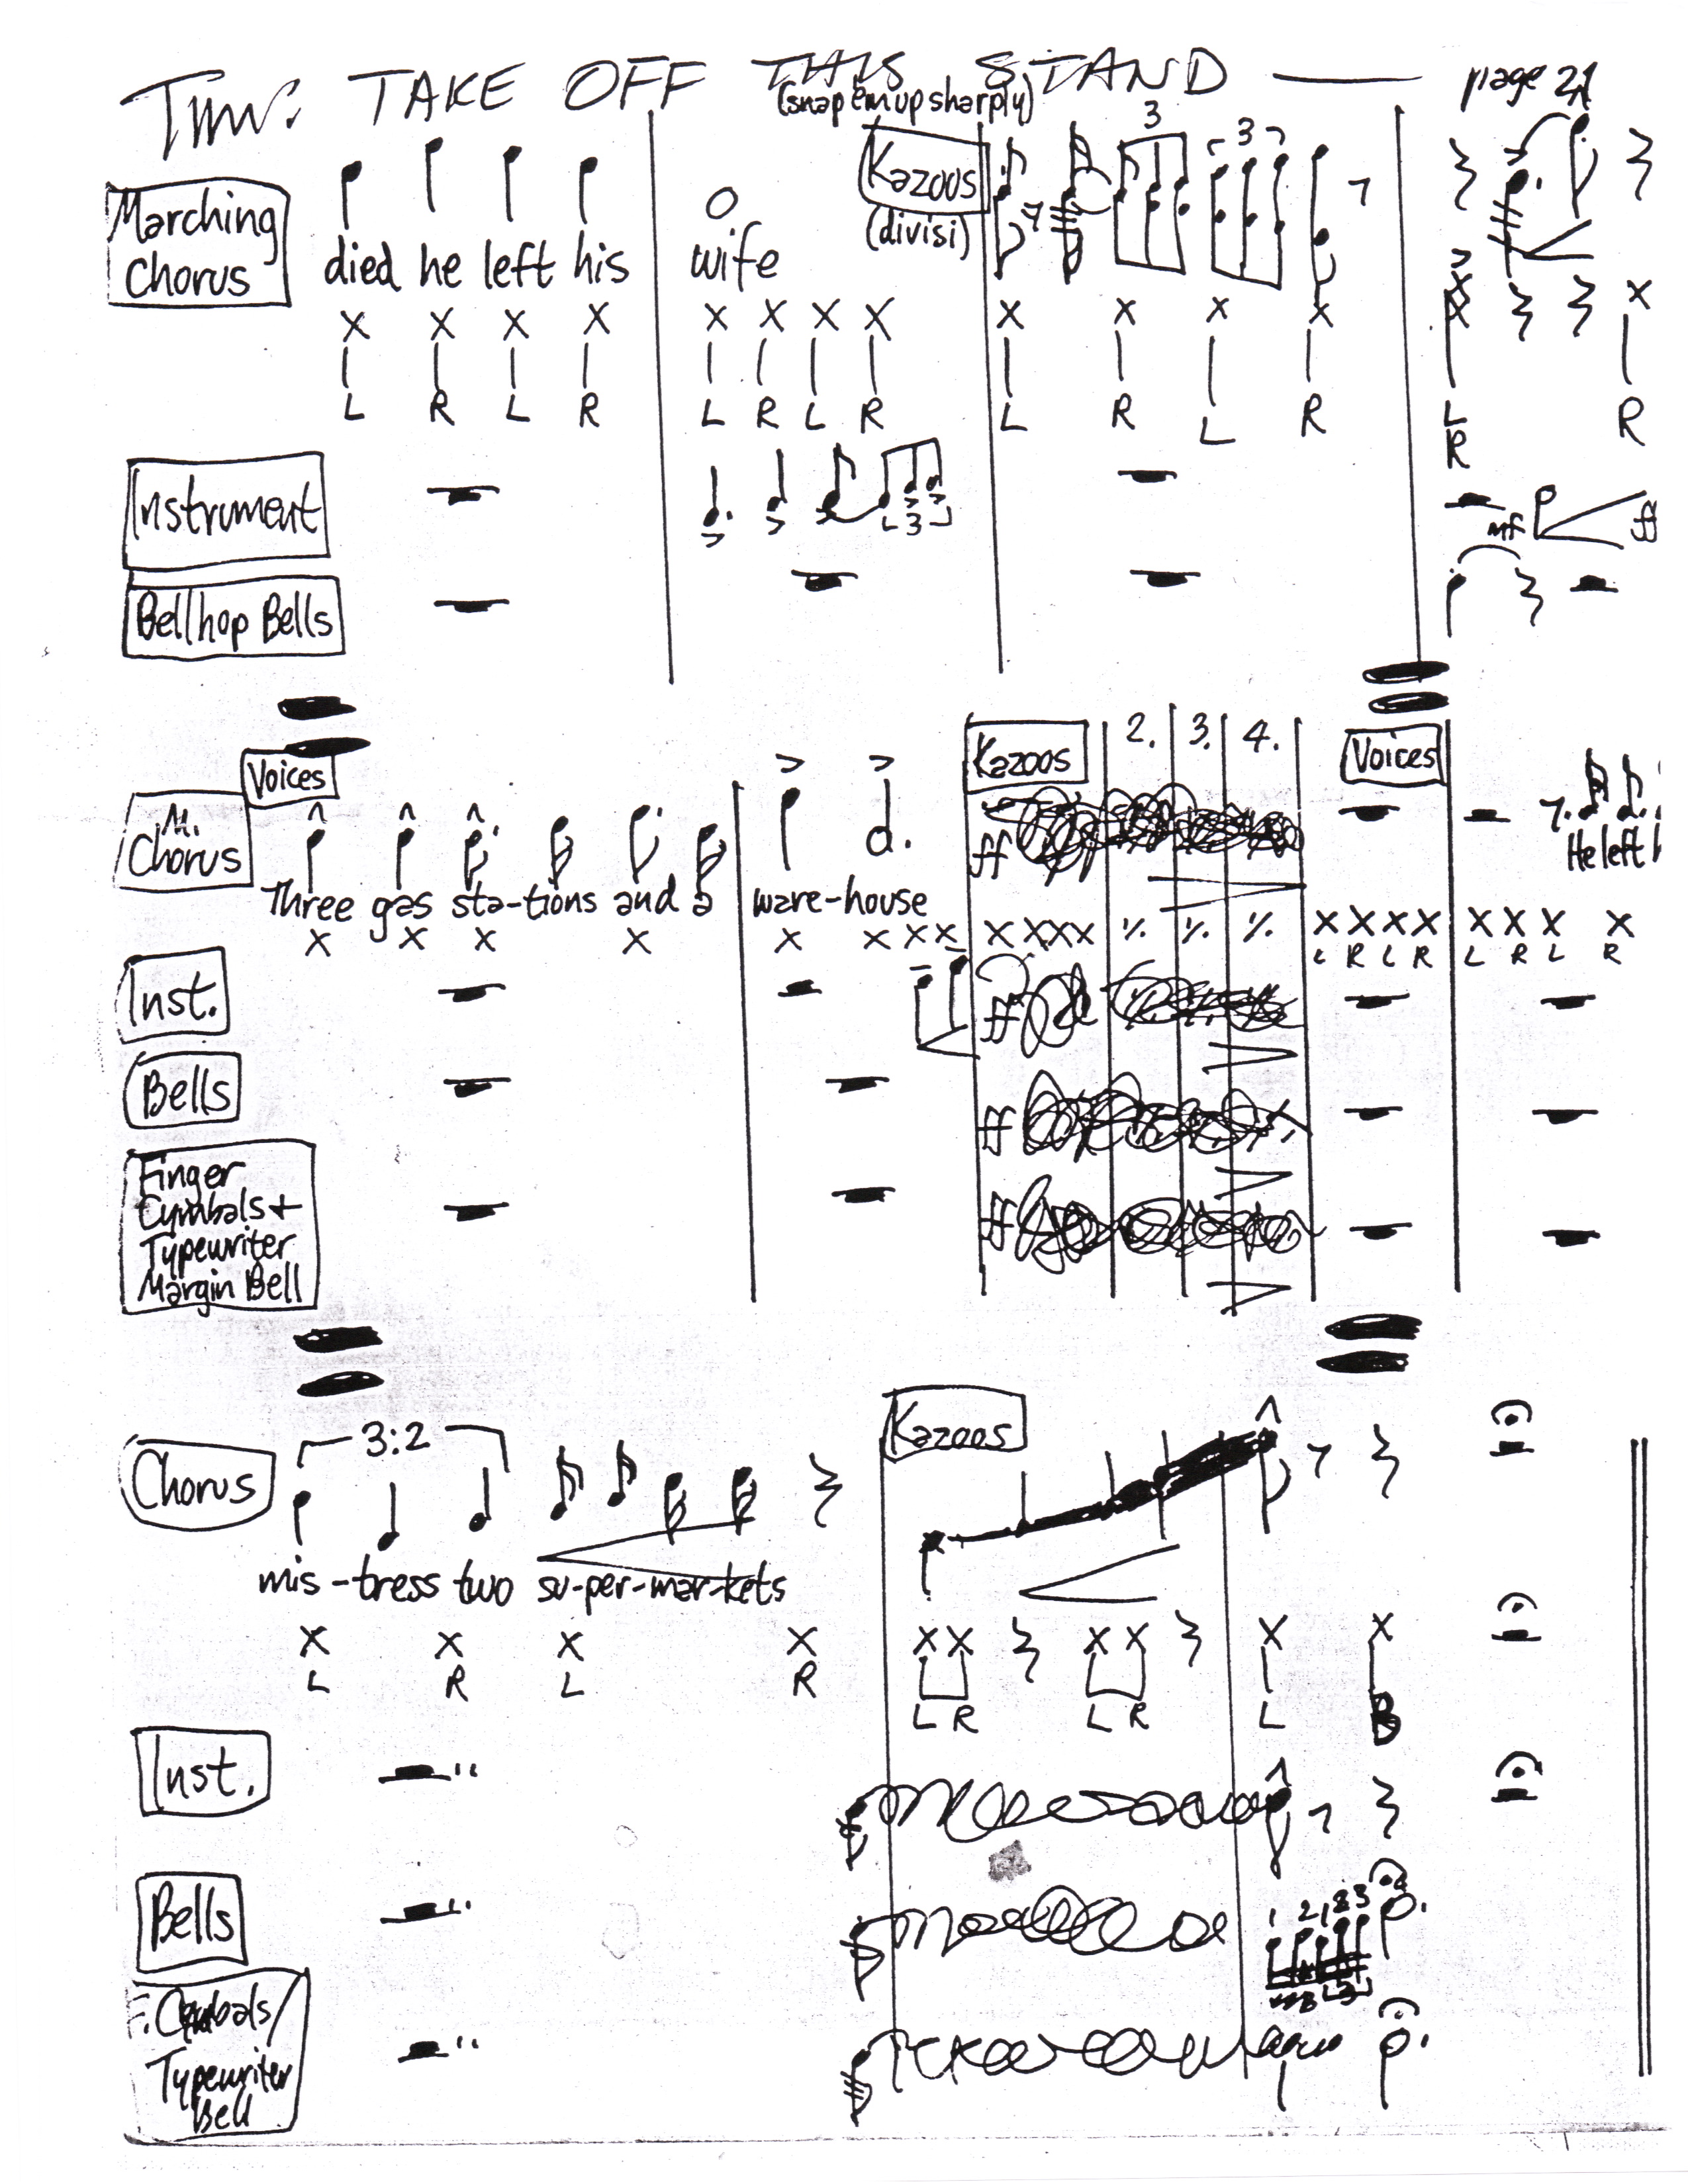 TAKE OFF THIS STAND
page 21
(snap em up sharply)
Marching
Chorus
Kazoos
(divisi)
3
3
died he left his
wife
X X X X
X X X X
X X X X
X X X
L R L R
L R L R
L R L R
L R
R
Instrument
3
mf
ff
Bellhop Bells
Voices
Kazoos
2. 3. 4.
Voices
M.
Chorus
ff
He left
Three gas sta-tions and a
ware-house
X X X X
X X X X
X X X X
X X X X
X X X X
L R L R
L R L R
Inst.
ff
Bells
ff
Finger
Cymbals +
Typewriter
Margin Bell
ff
Kazoos
Chorus
3:2
mis-tress two su-per-mar-kets
X X X X
X X X X
X X
L R L R
L R L R
L B
Inst.
Bells
1 2 1 2 3
3
F. Cymbals/
Typewriter
Bell